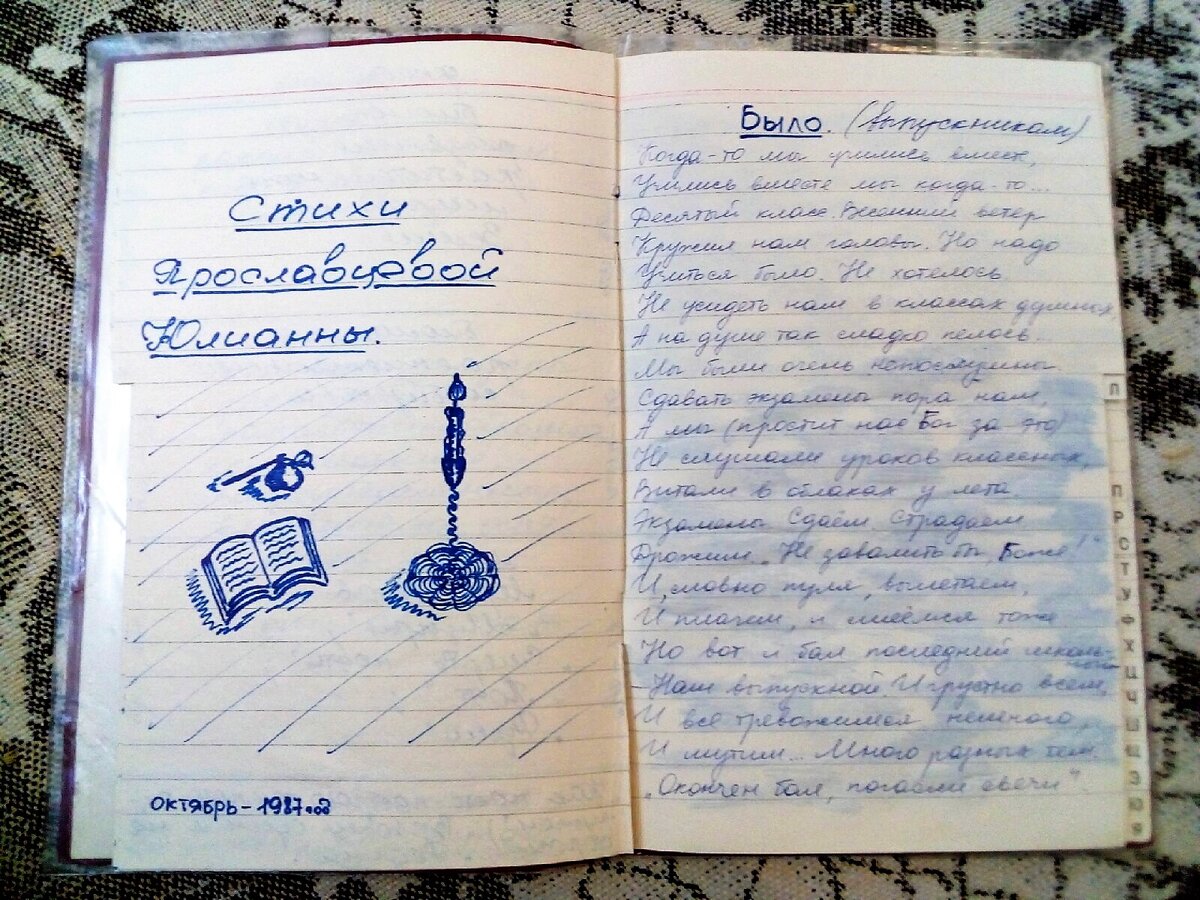 Стихи
Ярославцевой
Юлианны.
октябрь - 1987 год
Было. (выпускникам)
Когда-то мы учились вместе,
Учились вместе мы когда-то...
Десятый класс. Весенний ветер
Кружил нам головы. Но надо
Учиться было. Не хотелось
Не усидеть нам в классах душных
А на душе так сладко пелось.
Мы были очень непослушны
Сдавать экзамены пора нам,
А мы (простит нас Бог за это)
Не слушали уроков классных,
Витали в облаках у лета.
Экзамены Сдаём, Страдаем
Дрожим. „Не завалить бы, Боже!"
И, словно пуля, вылетаем,
И плачем, и смеёмся тоже.
Но вот и бал последний школьный
- Наш выпускной. И грустно всем,
И все тревожимся немного,
И шутим... Много разных тем.
„Окончен бал, погасли свечи"
П
П
Р
С
Т
У
Ф
Х
Ц
Ч
Ш
Щ
Э
Ю
Я